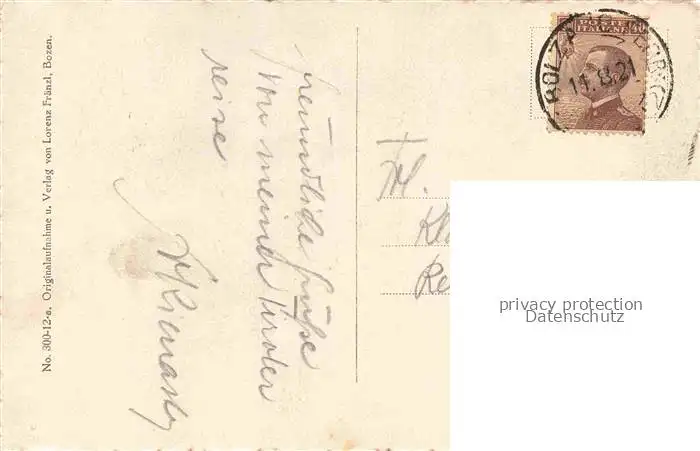 No. 300-12-a. Originalaufnahme u. Verlag von Lorenz Fränzl, Bozen.
freundliche Grüße
von meiner Tiroler
reise
Frl.
POSTE
ITALIANE
40
BOLZANO
11.8.21
privacy protection
Datenschutz